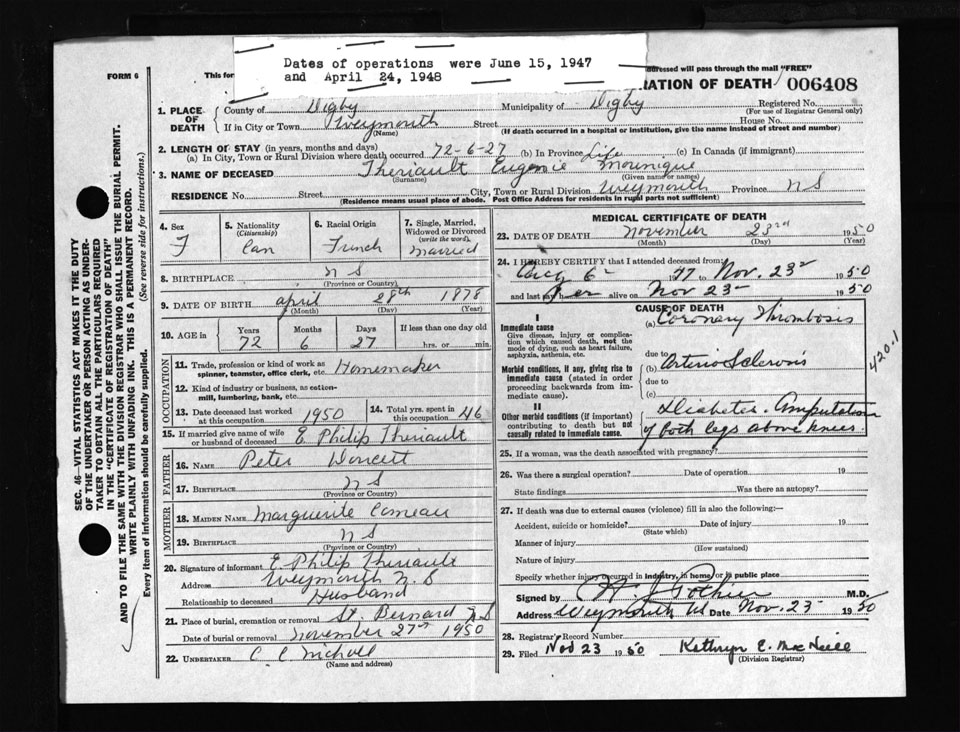 Dates of operations were June 15, 1947
and April 24, 1948
FORM 6
This for
dressed will pass through the mail "FREE"
RATION OF DEATH 006408
1. PLACE OF DEATH
County of Digby
Municipality of Digby
Registered No.
(For use of Registrar General only)
If in City or Town Weymouth Street House No.
(Name) (If death occurred in a hospital or institution, give the name instead of street and number)
2. LENGTH OF STAY (in years, months and days)
(a) In City, Town or Rural Division where death occurred 72-6-27 (b) In Province Life (c) In Canada (if immigrant)
3. NAME OF DECEASED Theriault Eugenie Monique
(Surname) (Given name or names)
RESIDENCE No. Street City, Town or Rural Division Weymouth Province N S
(Residence means usual place of abode. Post Office Address for residents in rural parts not sufficient)
4. Sex
F
5. Nationality
(Citizenship)
Can
6. Racial Origin
French
7. Single, Married, Widowed or Divorced
(write the word)
Married
8. BIRTHPLACE N S
(Province or Country)
9. DATE OF BIRTH April 28th 1878
(Month) (Day) (Year)
10. AGE in
Years Months Days If less than one day old
72 6 27 hrs. or min.
OCCUPATION
11. Trade, profession or kind of work as Homemaker
spinner, teamster, office clerk, etc.
12. Kind of industry or business, as cotton-
mill, lumbering, bank, etc.
13. Date deceased last worked
at this occupation 1950
14. Total yrs. spent in
this occupation 46
15. If married give name of wife
or husband of deceased E. Philip Theriault
FATHER
16. NAME Peter Doucett
17. BIRTHPLACE N S
(Province or Country)
MOTHER
18. MAIDEN NAME Marguerite Comeau
19. BIRTHPLACE N S
(Province or Country)
20. Signature of informant E. Philip Theriault
Address Weymouth N. S
Relationship to deceased Husband
21. Place of burial, cremation or removal St. Bernard N S
Date of burial or removal November 27th 1950
22. UNDERTAKER C. C. Nicholl
(Name and address)
MEDICAL CERTIFICATE OF DEATH
23. DATE OF DEATH November 23rd 1950
(Month) (Day) (Year)
24. I HEREBY CERTIFY that I attended deceased from:
Aug 6 1947 to Nov. 23 1950
and last saw her alive on Nov 23 1950
CAUSE OF DEATH
I
Immediate cause
Give disease, injury or complica-
tion which caused death, not the
mode of dying, such as heart failure,
asphyxia, asthenia, etc.
(a) Coronary Thrombosis
due to
Morbid conditions, if any, giving rise to
immediate cause (stated in order
proceeding backwards from im-
mediate cause).
(b) Arterio Sclerosis
due to
(c)
420.1
II
Other morbid conditions (if important)
contributing to death but not
causally related to immediate cause.
Diabetes. Amputation
of both legs above knees.
25. If a woman, was the death associated with pregnancy?
26. Was there a surgical operation? Date of operation 19
State findings Was there an autopsy?
27. If death was due to external causes (violence) fill in also the following:—
Accident, suicide or homicide? Date of injury 19
(State which)
Manner of injury
(How sustained)
Nature of injury
Specify whether injury occurred in industry, in home or in public place
Signed by Pothier M.D.
Address Weymouth NS Date Nov. 23 1950
28. Registrar's Record Number
29. Filed Nov 23 1950 Kathryn E. MacNeill
(Division Registrar)
SEC. 46—VITAL STATISTICS ACT MAKES IT THE DUTY
OF THE UNDERTAKER OR PERSON ACTING AS UNDER-
TAKER TO OBTAIN ALL THE PARTICULARS REQUIRED
IN THE "CERTIFICATE OF REGISTRATION OF DEATH"
AND TO FILE THE SAME WITH THE DIVISION REGISTRAR WHO SHALL ISSUE THE BURIAL PERMIT.
WRITE PLAINLY WITH UNFADING INK. THIS IS A PERMANENT RECORD.
Every item of information should be carefully supplied. (See reverse side for instructions.)